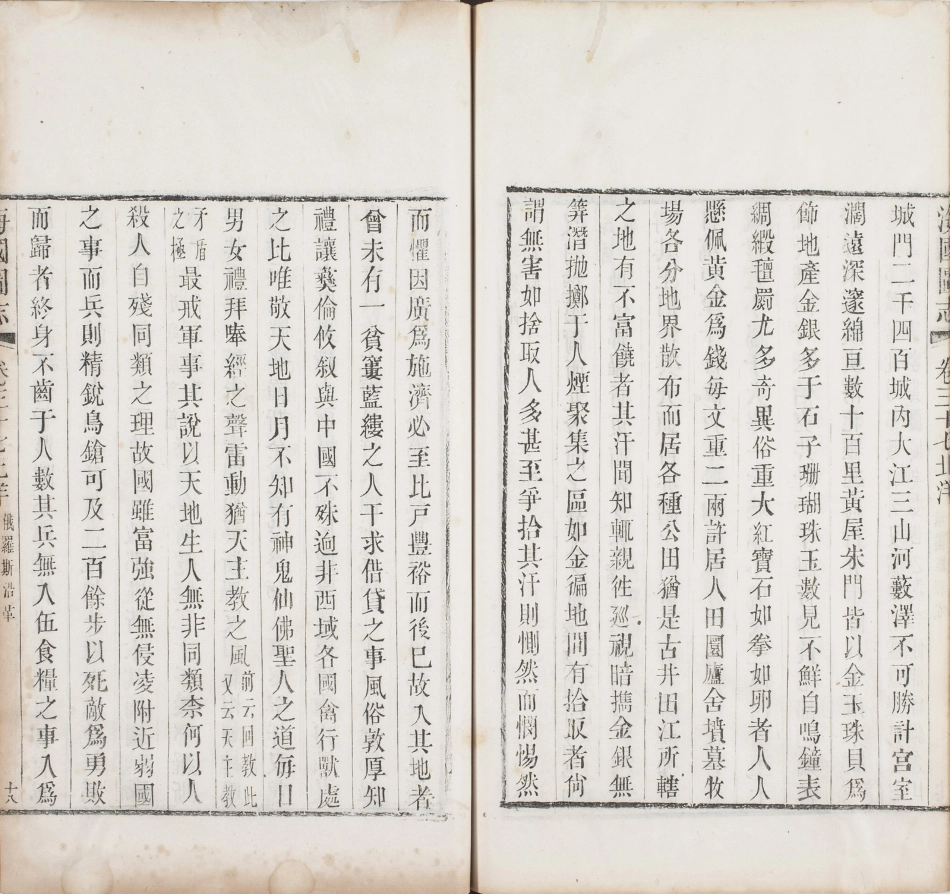 海國圖志 卷三十七 北洋
城門二千四百城內大江三山河藪澤不可勝計宮室
濶遠深邃綿亘數十百里黃屋朱門皆以金玉珠貝爲
飾地產金銀多于石子珊瑚珠玉數見不鮮自鳴鐘表
綢緞氊罽尤多奇異俗重大紅寶石如拳如卵者人人
懸佩黃金爲錢每文重二兩許居人田園廬舍墳墓牧
場各分地界散布而居各種公田猶是古井田江所轄
之地有不富饒者其汗聞知輒親徃廵視暗攜金銀無
筭潛拋擲于人煙聚集之區如金徧地間有拾取者尙
謂無害如捨取人多甚至爭拾其汗則惻然而憫惕然
而懼因廣爲施濟必至比戶豐裕而後已故入其地者
曾未有一貧窶藍縷之人干求借貸之事風俗敦厚知
禮讓彜倫攸叙與中國不殊逈非西域各國禽行獸處
之比唯敬天地日月不知有神鬼仙佛聖人之道每日
男女禮拜奉經之聲雷動猶天主教之風前云回教此又云天主教
矛盾之極最戒軍事其說以天地生人無非同類柰何以人
殺人自殘同類之理故國雖富強從無侵凌附近弱國
之事而兵則精銳鳥鎗可及二百餘步以死敵爲勇敗
而歸者終身不齒于人數其兵無入伍食糧之事人爲
海國圖志 卷三十七 北洋 俄羅斯沿革 十八